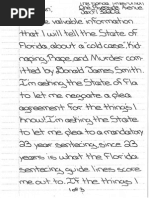 One Riverside Avenue
some valuable information
that I will tell the State of
Florida about a "cold case" Kid-
naping, Rape, and Murder com-
itted by Donald James Smith.
I'm asking the State of Fla
to let me negotiate a plea
agreement for the things I
know. I'm asking the State
to let me plea to a mandatory
23 year sentencing since 23
years is what the Florida
sentencing guide lines score
me out to. If the things I
1 of 3